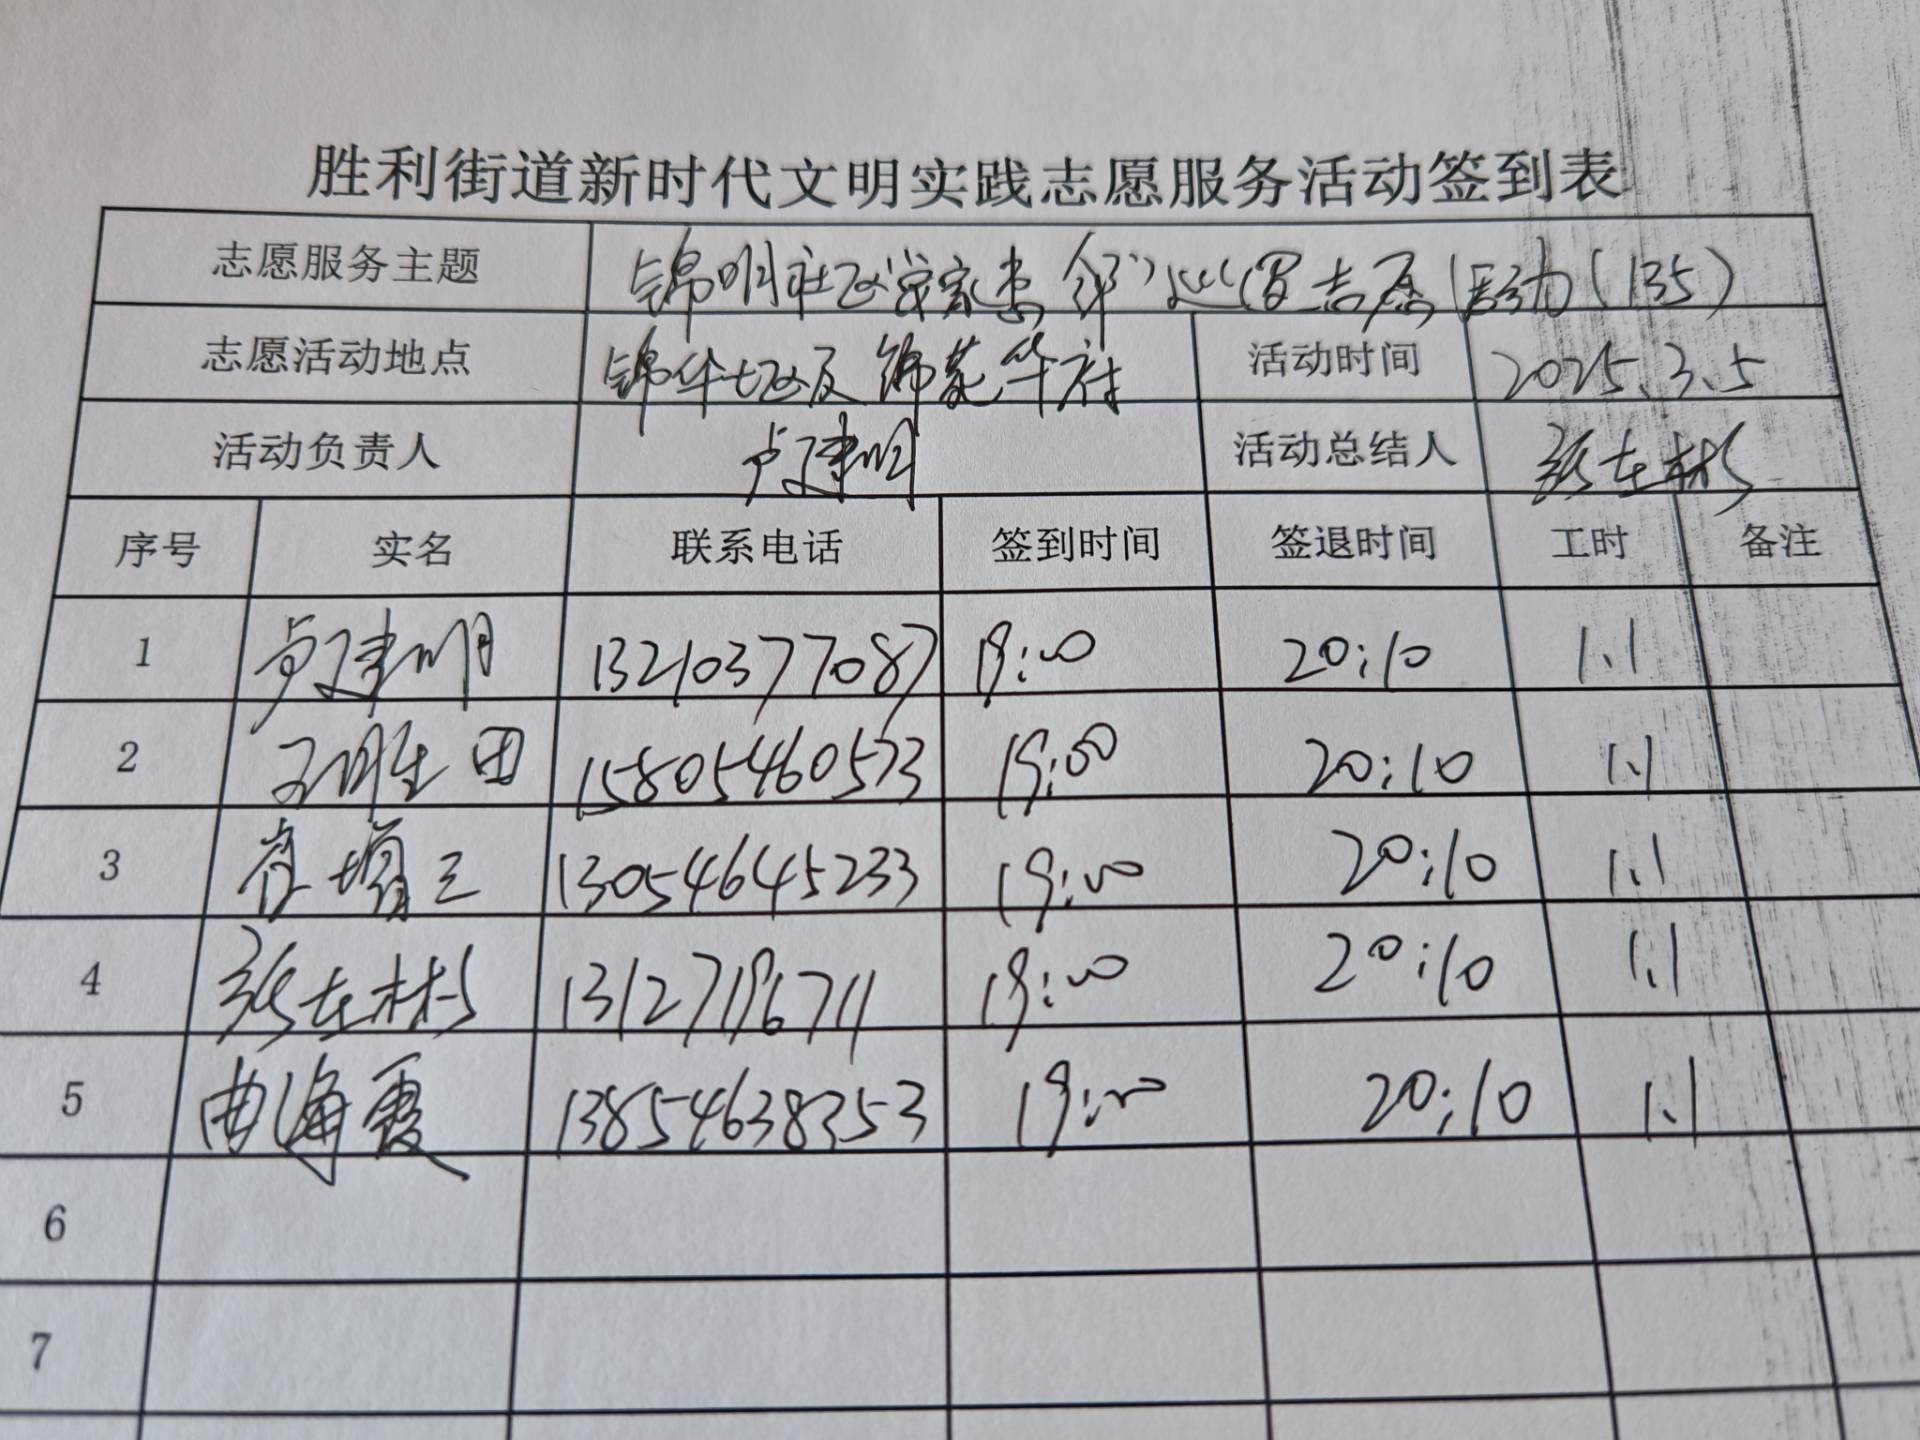 胜利街道新时代文明实践志愿服务活动签到表
志愿服务主题 锦明社区 志愿活动(135)
志愿活动地点 锦华七区及锦苑华府 活动时间 2025.3.5
活动负责人 卢建明 活动总结人 张在彬
序号 实名 联系电话 签到时间 签退时间 工时 备注
1 卢建明 13210377087 19:00 20:10 1.1
2 15805460573 19:00 20:10 1.1
3 13054645233 19:00 20:10 1.1
4 张在彬 13127196711 19:00 20:10 1.1
5 曲海霞 13854638353 19:00 20:10 1.1
6
7